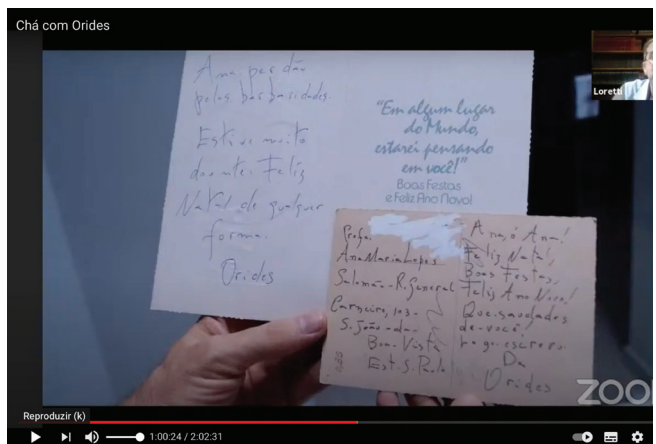 Chá com Orides
Ana, perdão
pelas barbaridades.
Estive muito
doente. Feliz
Natal de qualquer
forma.
Orides
"Em algum lugar
do Mundo,
estarei pensando
em você!"
Boas Festas
e Feliz Ano Novo!
Profa.
Ana Maria Lopes
Salomão - R. General
Carneiro, 103 -
S. João - da -
Boa - Vista
Est. S. Paulo
Ana, ó Ana!
Feliz Natal,
Boas Festas,
Feliz Ano Novo!
Que saudades
de você!
Da
Orides
Loretti
ZOO
Reproduzir (k)
1:00:24 / 2:02:31